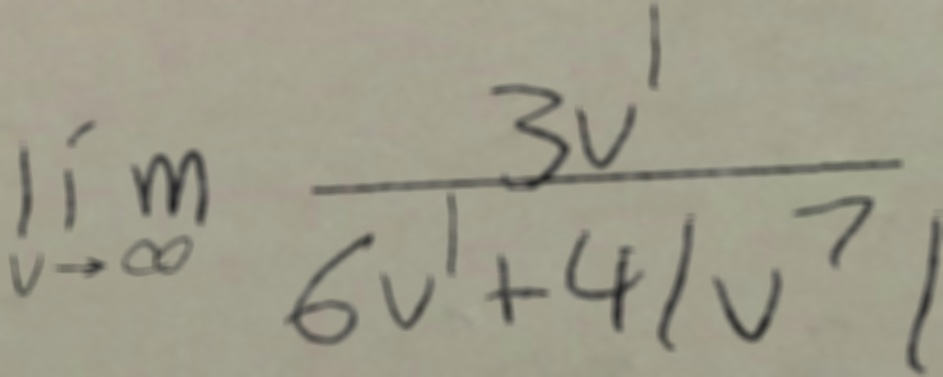 \lim_{v \to \infty} \frac{3v^1}{6v^1+4|v^7|}